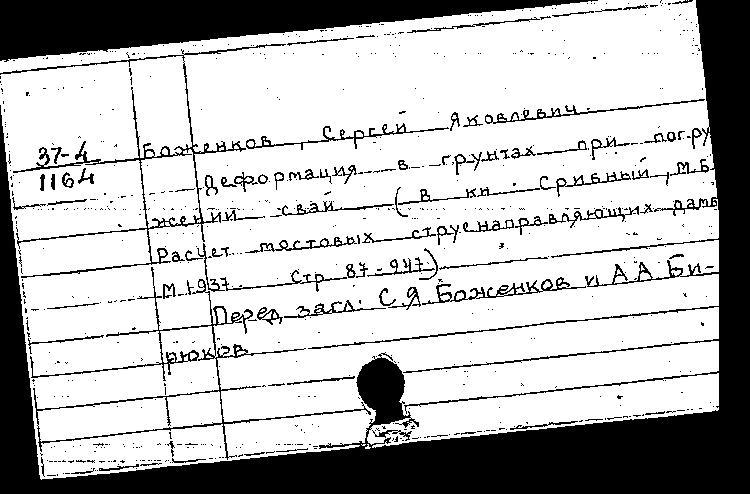 37-4
1164
Боженков, Сергей Яковлевич.
Деформация в грунтах при погру
жении свай (В кн: Срибный, М.Б.
Расчет мостовых струенаправляющих дамб
М. 1937. Стр 87-947)
Перед загл: С.Я. Боженков и А А. Би-
рюков.